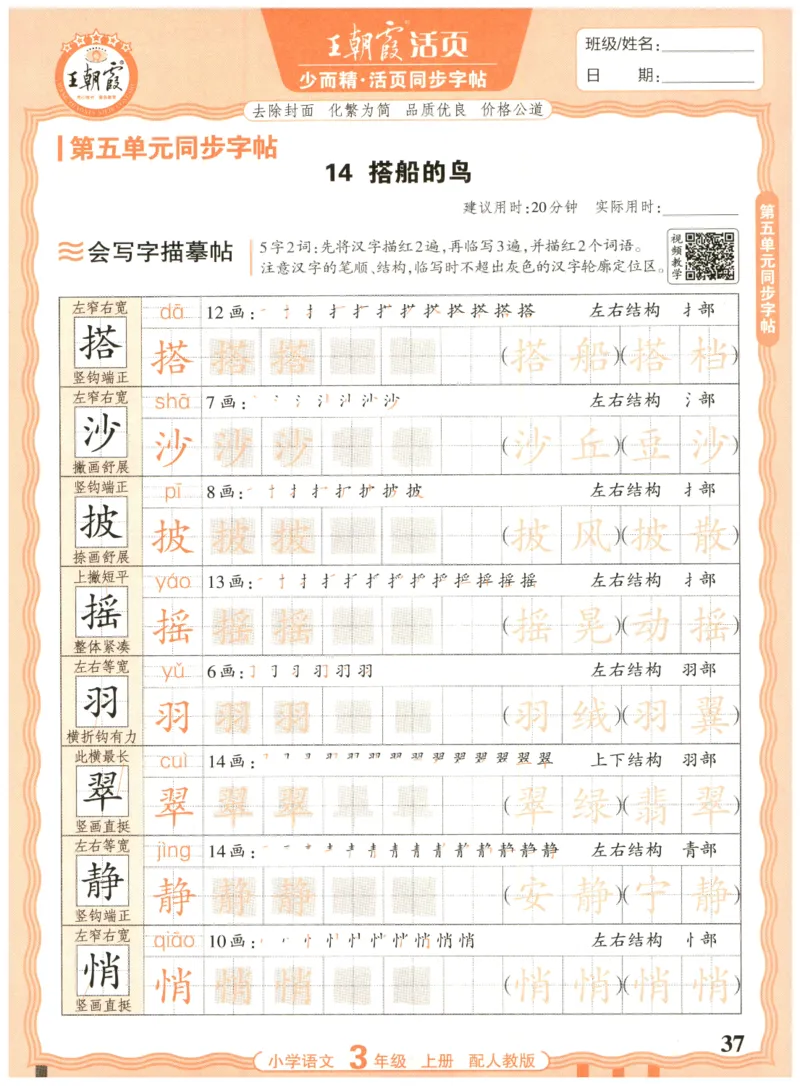 王朝霞
王朝霞活页
少而精·活页同步字帖
班级/姓名：
日 期：
去除封面 化繁为简 品质优良 价格公道
第五单元同步字帖
14 搭船的鸟
建议用时：20分钟 实际用时：
会写字描摹帖
5字2词：先将汉字描红2遍，再临写3遍，并描红2个词语。
注意汉字的笔顺、结构，临写时不超出灰色的汉字轮廓定位区。
视频教学
第五单元同步字帖
左窄右宽 dā 12画： 左右结构 扌部
搭 搭 搭 搭 （搭船）（搭档）
竖钩端正
左窄右宽 shā 7画： 左右结构 氵部
沙 沙 沙 沙 （沙丘）（豆沙）
撇画舒展
竖钩端正 pī 8画： 左右结构 扌部
披 披 披 披 （披风）（披散）
捺画舒展
上撇短平 yáo 13画： 左右结构 扌部
摇 摇 摇 摇 （摇晃）（动摇）
整体紧凑
左右等宽 yǔ 6画： 左右结构 羽部
羽 羽 羽 羽 （羽绒）（羽翼）
横折钩有力
此横最长 cuì 14画： 上下结构 羽部
翠 翠 翠 翠 （翠绿）（翡翠）
竖画直挺
左右等宽 jìng 14画： 左右结构 青部
静 静 静 静 （安静）（宁静）
竖钩端正
左窄右宽 qiāo 10画： 左右结构 忄部
悄 悄 悄 悄 （悄悄）（悄悄）
竖画直挺
37
小学语文 3年级 上册 配人教版